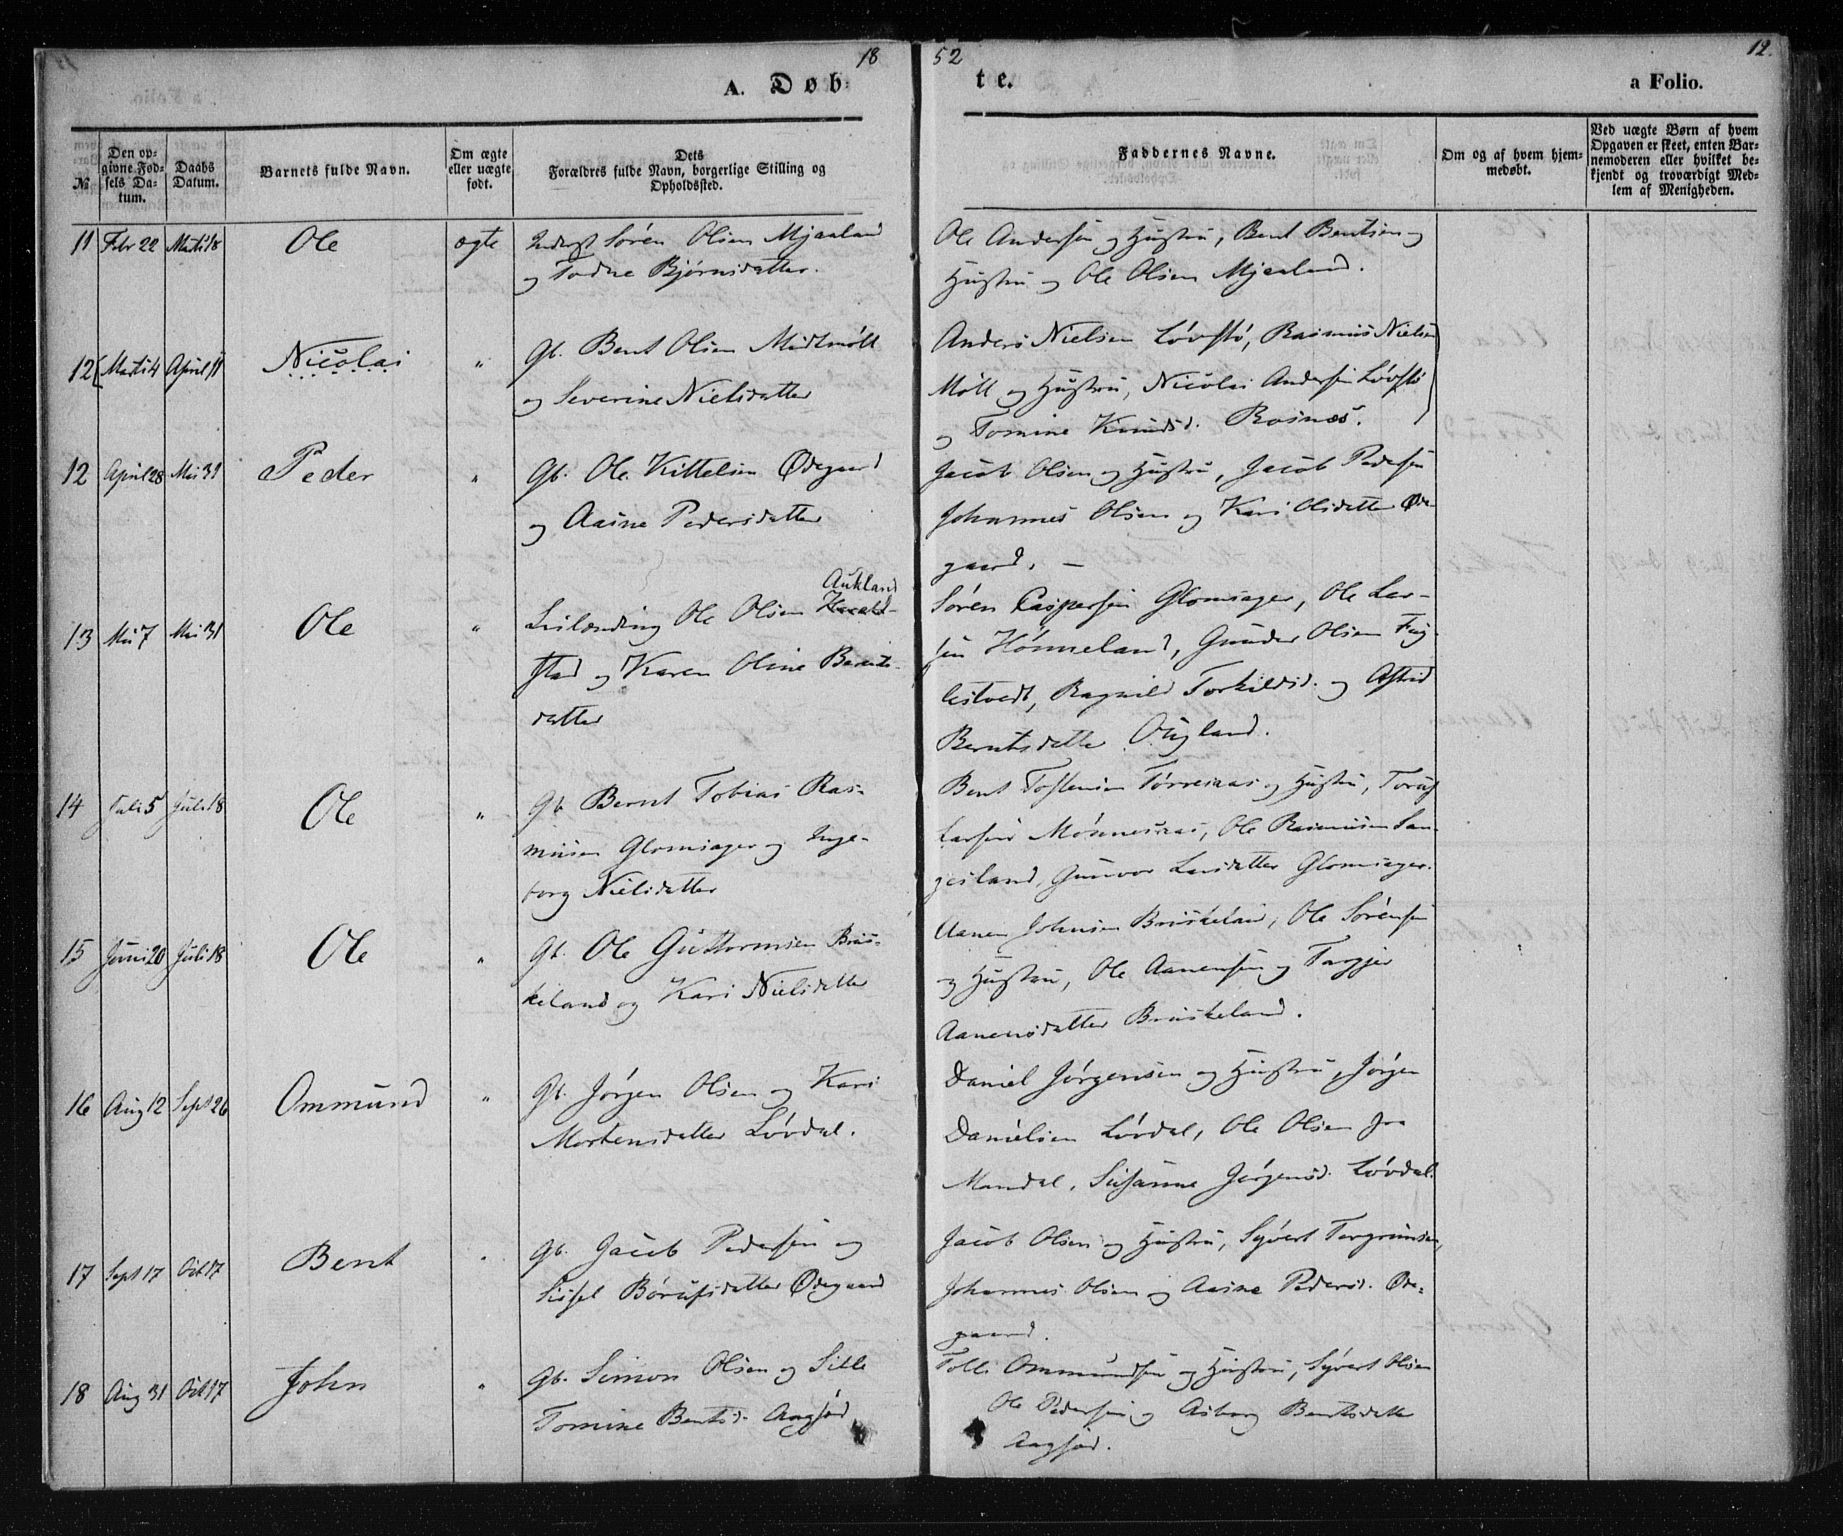 18
52
12.
A. Døb-
te.
a Folio.
№
Den op-
givne Fød-
sels Da-
tum.
Daabs
Datum.
Barnets fulde Navn.
Om ægte
eller uægte
født.
Dets
Forældres fulde Navn, borgerlige Stilling og
Opholdssted.
Faddernes Navne.
Om og af hvem hjem-
medøbt.
Ved uægte Børn af hvem
Opgaven er skeet, enten Bar-
nemoderen eller hvilket be-
kjendt og troværdigt Med-
lem af Menigheden.
11 Febr 22 Marti 18 Ole ægte Inderst Sören Olsen Mjaaland
og Todne Bjørnsdatter.
Ole Andersen og Hustru, Bent Bentsen og
Hustru og Ole Olsen Mjaaland.
12 Marti 4 April 11 Nicolai " Gb. Bent Olsen Midtmöll
og Severine Nielsdatter
Anders Nielsen Lóvstö, Rasmus Nielsen
Möll og Hustru, Nicolai Andersen Lóvstö
og Tomine Knudsd. Rosnæs.
12 April 28 Mai 31 Peder " Gb. Ole Kittelsen Ødegaard
og Aasne Pedersdatter
Jacob Olsen og Hustru, Jacob Pedersen
Johannes Olsen og Kari Olsdatter Øde-
gaard. –
13 Mai 7 Mai 31 Ole " Leilænding Ole Olsen Aukland
stad og Karen Oline Bernts-
datter
Sören Caspersen Glomsager, Ole Lar-
sen Hónneland, Gunder Olsen Fug-
lestvedt, Ragnild Torkildsd. og Astrid
Berntsdatter Ougland.
14 Juli 5 Juli 18 Ole " Gb Bernt Tobias Ras-
musen Glomsager og Inge-
borg Nielsdatter
Bent Tostensen Tørresnas og Hustru,
Larsen Mónnesnas, Ole Rasmusen Lan-
gesland, Gunvor Larsdatter Glomsager.
15 Juni 20 Juli 18 Ole " Gb. Ole Guttormsen Brus-
keland og Kari Nielsdatter
Aanen Johnsen Bruskeland, Ole Sörensen
og Hustru, Ole Aanensen og Targjer
Aanensdatter Bruskeland.
16 Aug 12 Sept 26 Ommund " Gb. Jörgen Olsen og Kari
Mortensdatter Lóvdal.
Daniel Jörgensen og Hustru, Jörgen
Danielsen Lóvdal, Ole Olsen fra
Mandal, Susanne Jörgensd. Lóvdal.
17 Sept 17 Oct 17 Bent " Gb. Jacob Pedersen og
Sissel Börufsdatter Ødegaard
Jacob Olsen og Hustru, Syvert Torgrimsen,
Johannes Olsen og Aasne Pedersd. Øde-
gaard.
18 Aug 31 Oct 17 John " Gb. Simon Olsen og Sille
Tomine Bentsd. Aagsöd
Tolli Ommundsen og Hustru, Syvert Olsen
Ole Pedersen og Asborg Bentsdatter
Aagsöd.